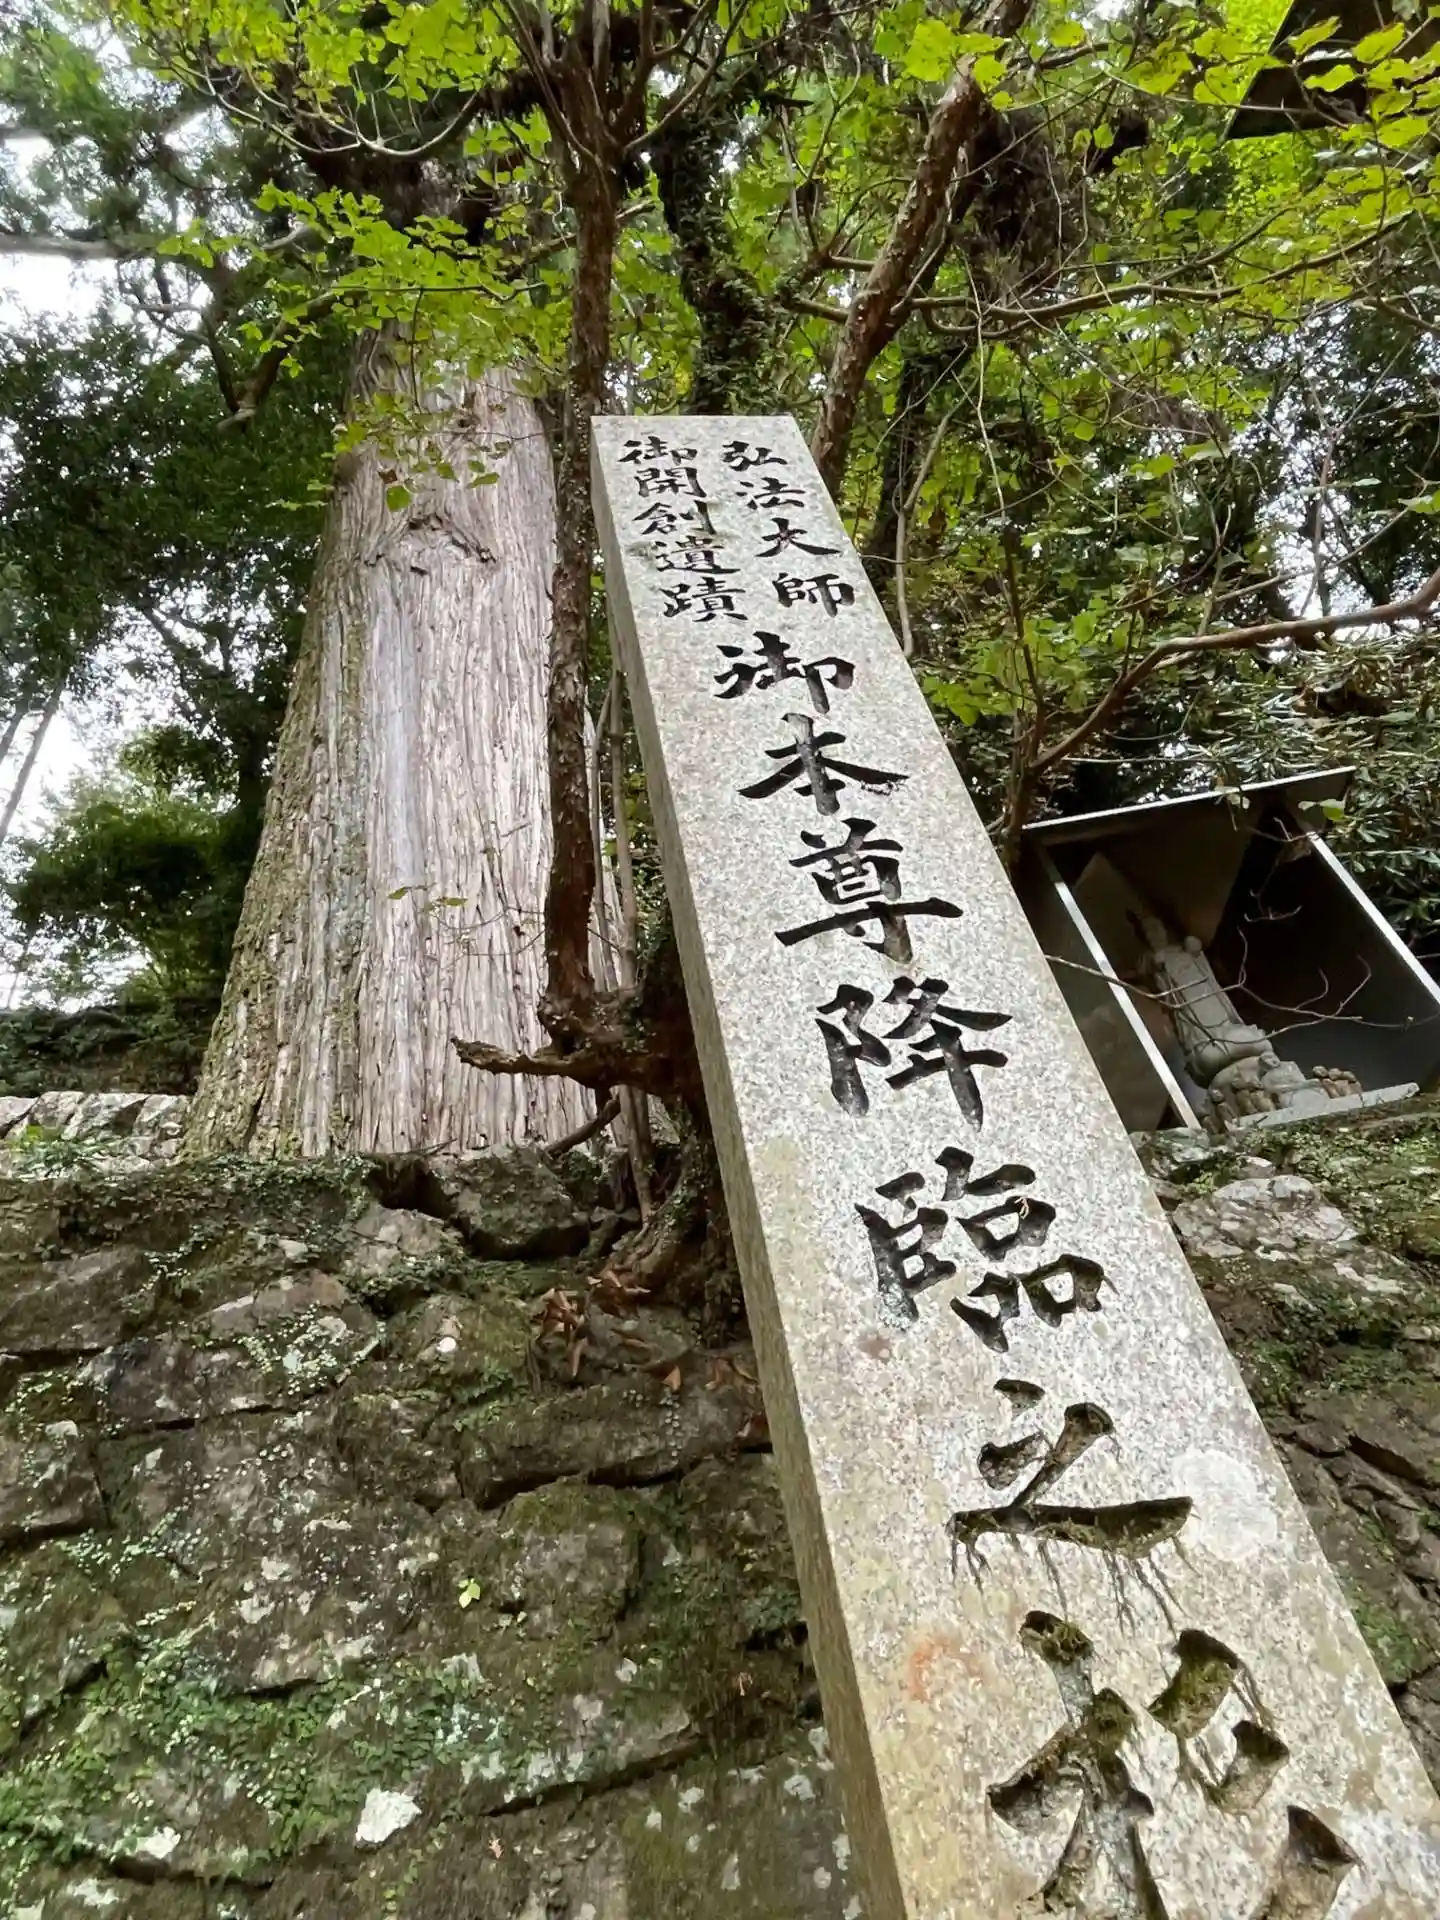 弘法大師
御開創遺蹟
御本尊降臨之松